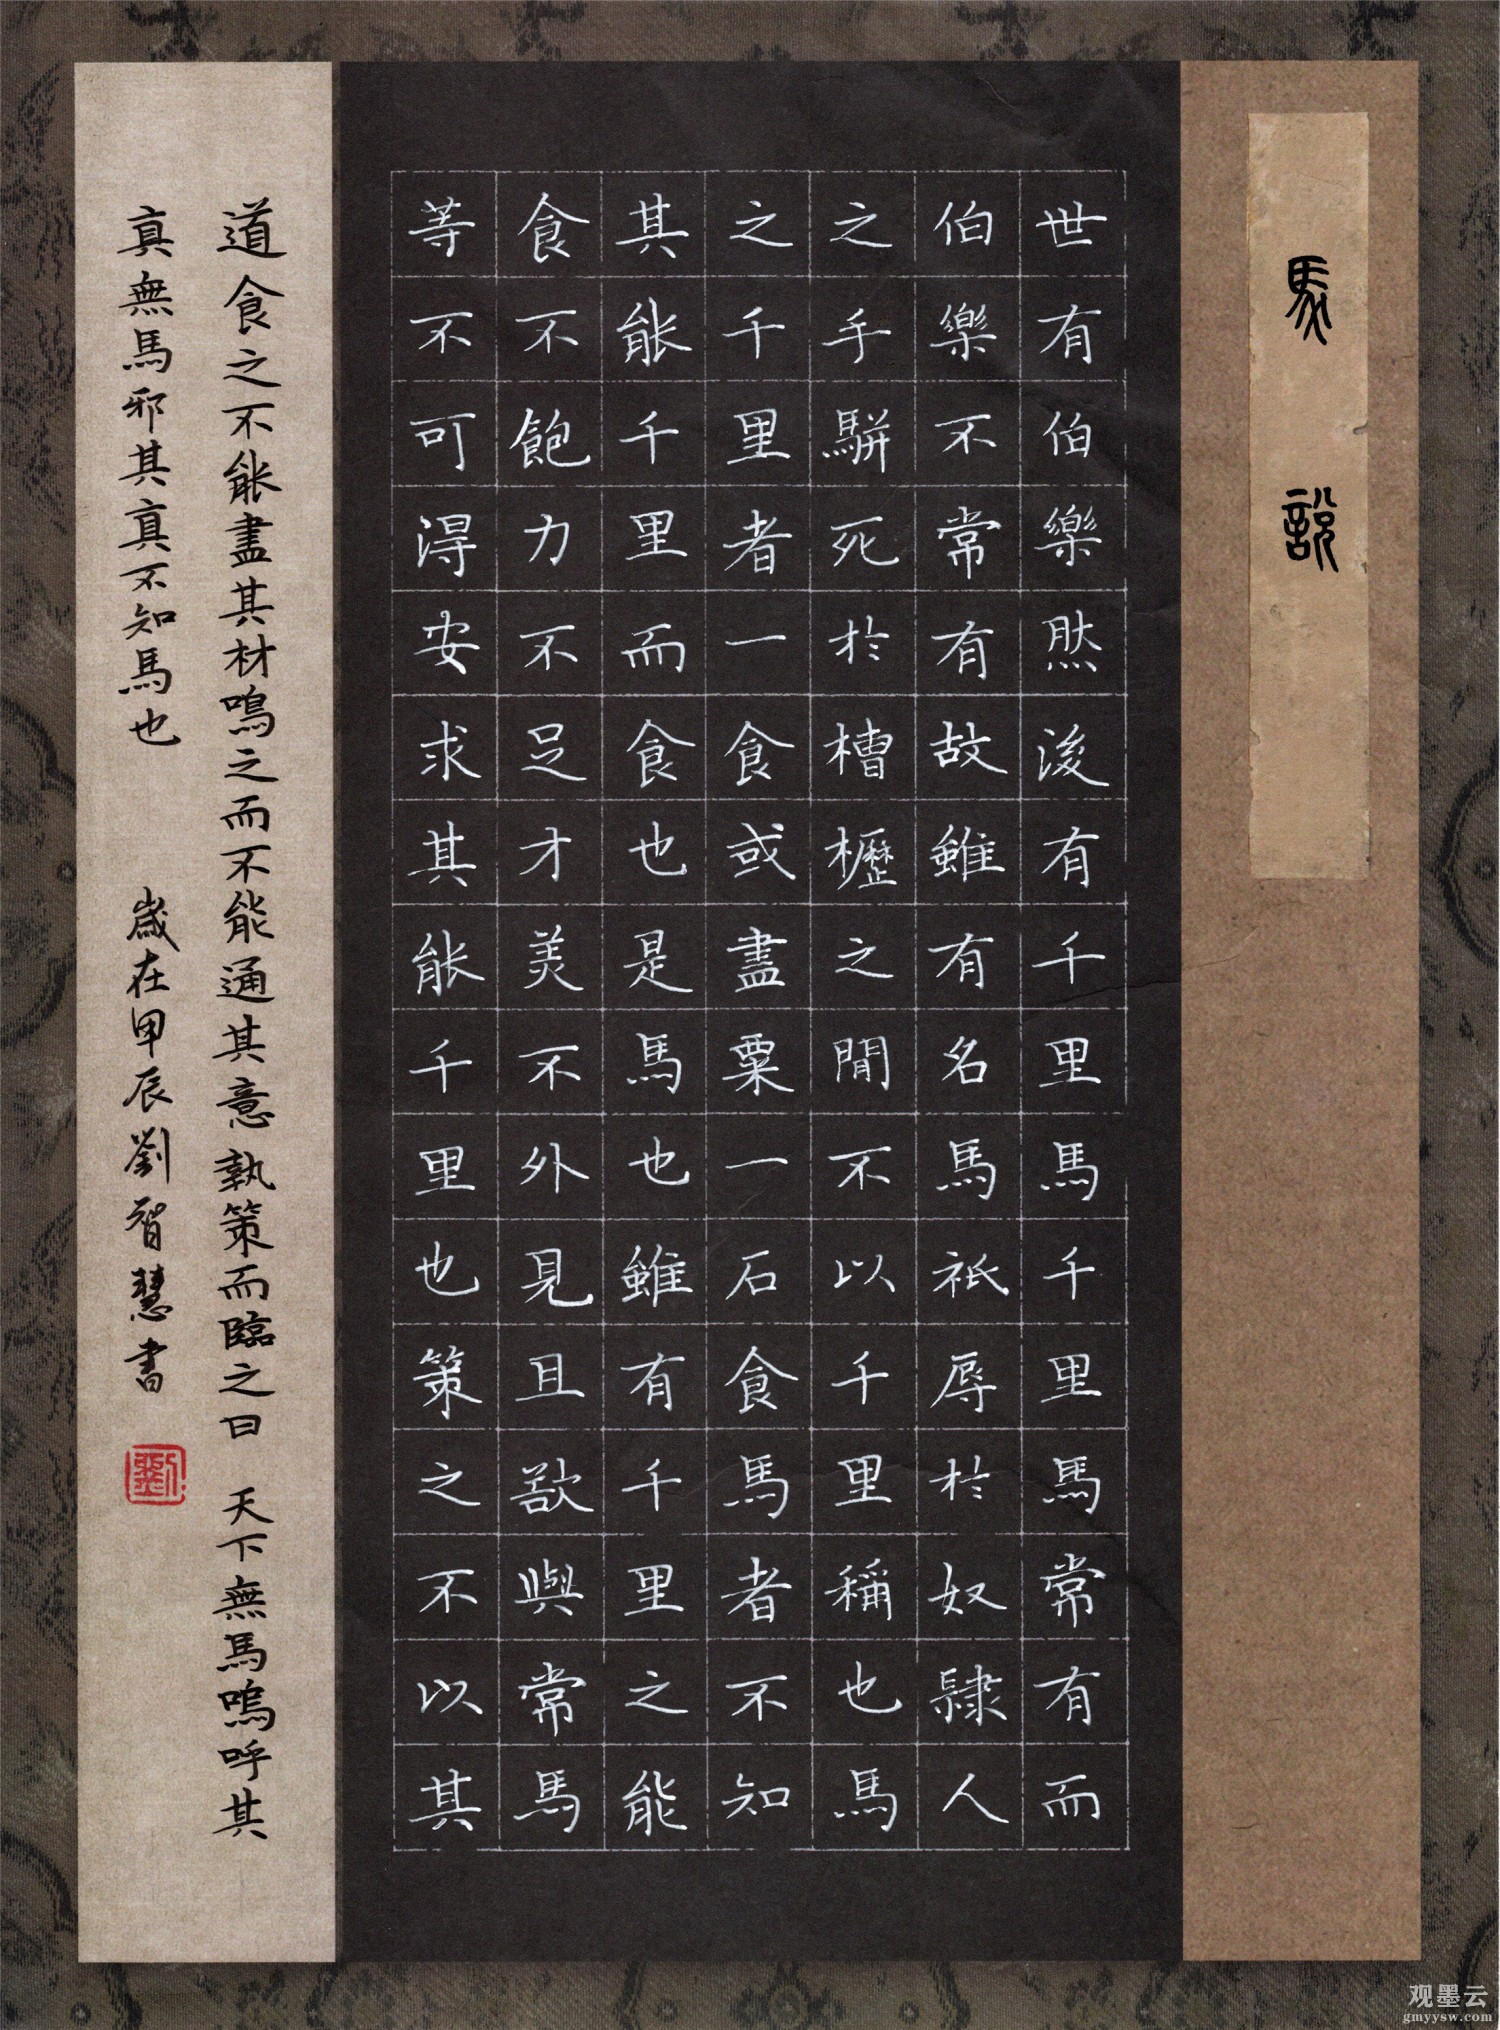 馬說
世有伯樂然後有千里馬千里馬常有而
伯樂不常有故雖有名馬祇辱於奴隸人
之手駢死於槽櫪之閒不以千里稱也馬
之千里者一食或盡粟一石食馬者不知
其能千里而食也是馬也雖有千里之能
食不飽力不足才美不外見且欲與常馬
等不可得安求其能千里也策之不以其
道食之不能盡其材鳴之而不能通其意執策而臨之曰 天下無馬嗚呼其
真無馬邪其真不知馬也 歲在甲辰劉智慧書
劉
观墨云
gmyysw.com